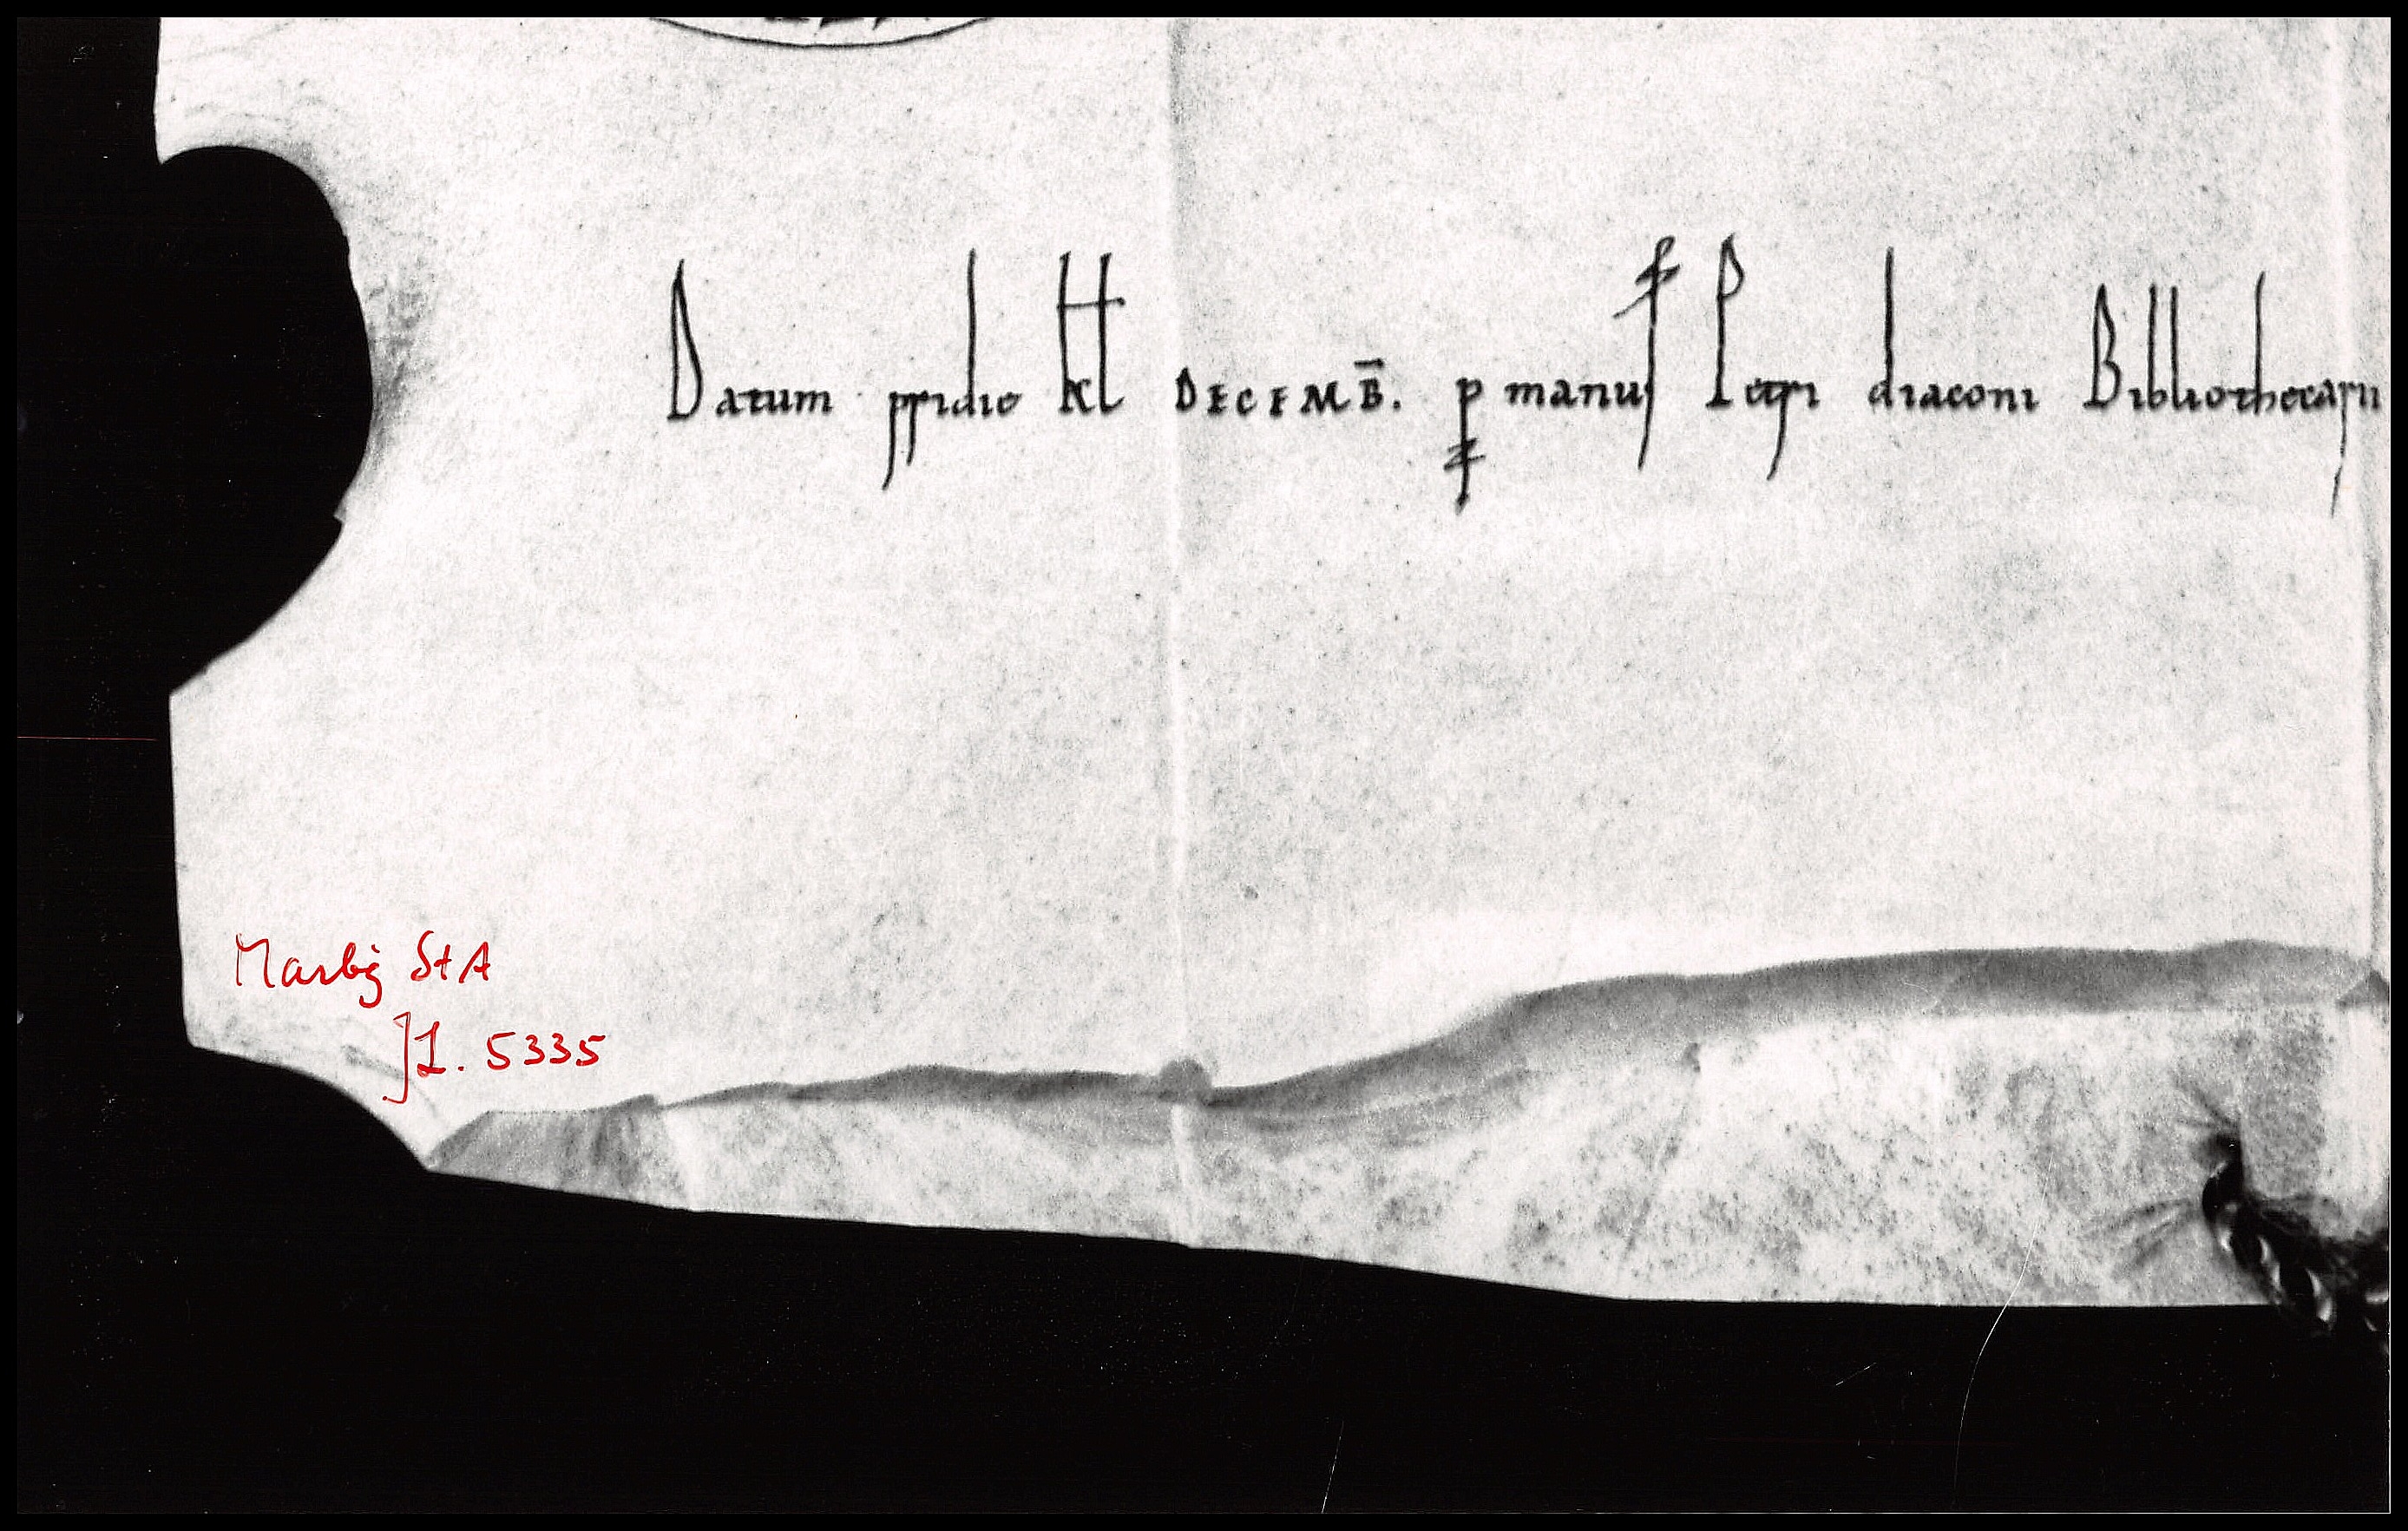 Datum pridie kł DECEMB̅. p manus Petri diaconi Bibliothecarii
Marbg StA
JL. 5335